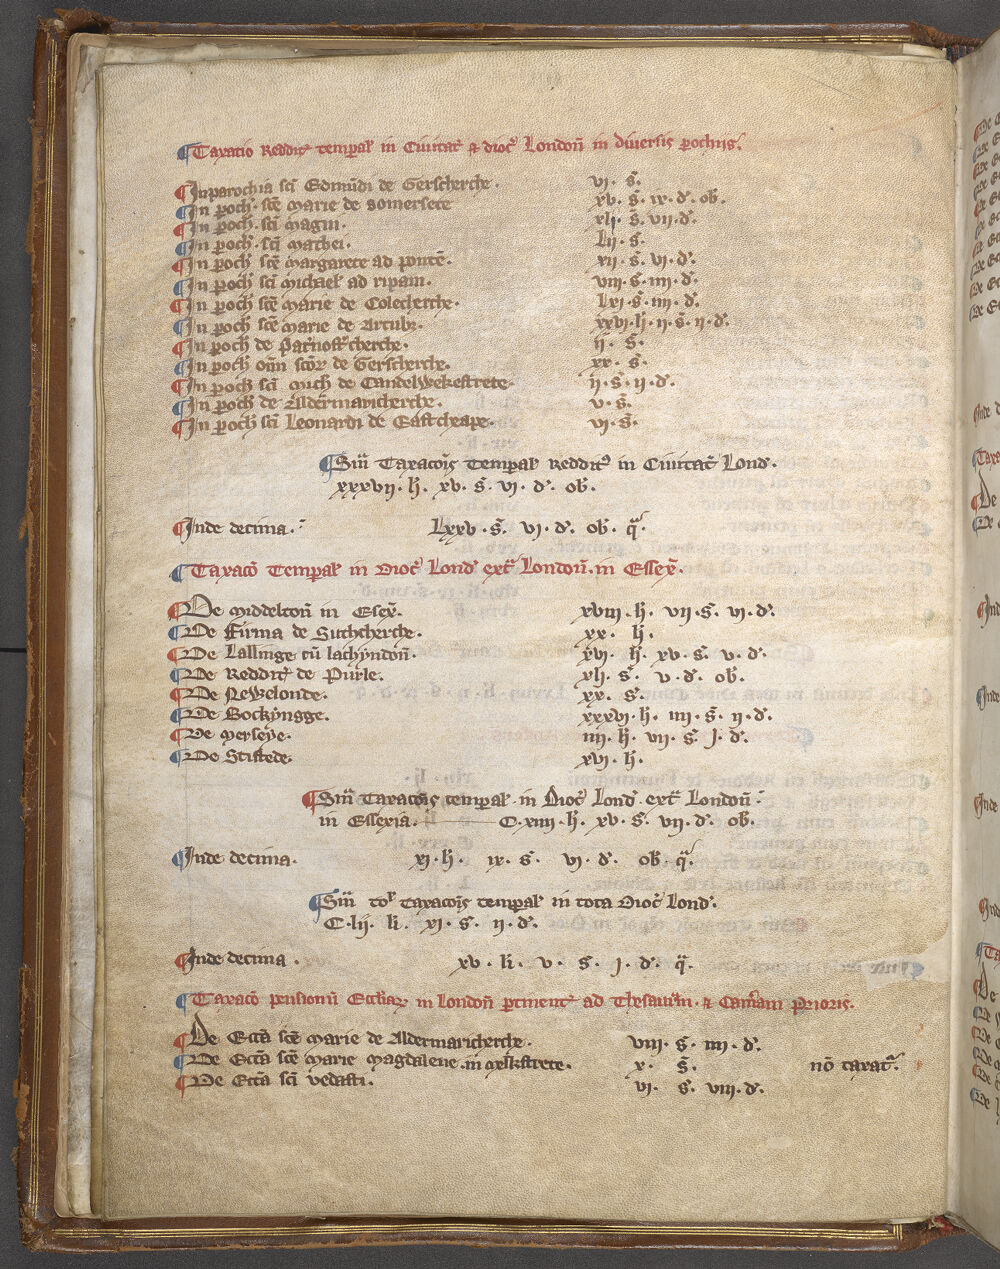 ¶Taxatio Reddit' temp̲al' in Ciuitat' & dioc' Londoñ in diuersis p̲ochijs.
¶In parochia sc̄i Edmūdi de Gerscherche. vi. s̃.
¶In p̲och'. sc̄e marie de Somersete xv. s̃. ix. d'. ob'.
¶In p̲och'. sc̄i magni. xlj. s̃. vii. d'.
¶In p̲och'. sc̄i mathei. lij. s̃.
¶In p̲och' sc̄e margarete ad pontē. xii. s̃. vi. d'.
¶In p̲och' sc̄i michael' ad ripam. viii. s̃. iiii. d'.
¶In p̲och' sc̄e marie de Colecherche. lxi. s̃. iiii. d'.
¶In p̲och' sc̄e marie de Arcub'. xxvi. li. ii. s̃. ii. d'.
¶In p̲och' de ii. s̃.
¶In p̲och' oīm sc̄or' de Gerscherche. xx. s̃.
¶In p̲och' sc̄i mich' de Candelwekestrete. ii. s̃. ii. d'.
¶In p̲och' de Aldermaricherche. v. s̃.
¶In p̲och' sc̄i Leonardi de Eastcheape. vi. s̃.
¶Sūᵃ Taxacōis Temp̲al' Reddit' in Ciuitat' Lond'.
xxxvii. li. xv. s̃. vi. d'. ob'.
¶Inde decima. lxxv. s̃. vi. d'. ob'. qᵃ.
¶Taxacō Temp̲al' in Dioc' Lond' extᵃ Londoñ. in Essex̃.
¶De middeltoñ in Esex̃. xviii. li. vii. s̃. vi. d'.
¶De Firma de Suthcherche. xx. li.
¶De Lallinge cū lachyndoñ. xvi. li. xv. s̃. v. d'.
¶De Reddit' de Purle. xlj. s̃. v. d'. ob'.
¶De Newelonde. xx. s̃.
¶De Bockyngge. xxxvi. li. iiii. s̃. ii. d'.
¶De merseye. iiii. li. vii. s̃. j. d'.
¶De Stistede. xvi. li.
¶Sūᵃ Taxacōis temp̲al'. in Dioc' Lond' extᵃ Londoñ.
in Essexia. C. xiiii. li. xv. s̃. vii. d'. ob'.
¶Inde decima. xi. li. ix. s̃. vi. d'. ob' qᵃ.
¶Sūᵃ tol' taxacōis temp̲al' in tota Dioc' Lond'.
C. lij. li. xi. s. ii. d'.
¶Inde decima. xv. li. v. s̃. j. d'. qᵃ.
¶Taxacō pensionū Ecc̄iar' in Londoñ p̲tinent' ad Thesaur̄m. & Cam̄am Prioris.
¶De Ecc̄a sc̄e marie de Aldermaricherche. viii. s̃. iiii. d'.
¶De Ecc̄a sc̄e marie magdalene. in melkstrete. x. s̃. nō taxatᵃ.
¶De Ecc̄a sc̄i vedasti. vi. s̃. viii. d'.